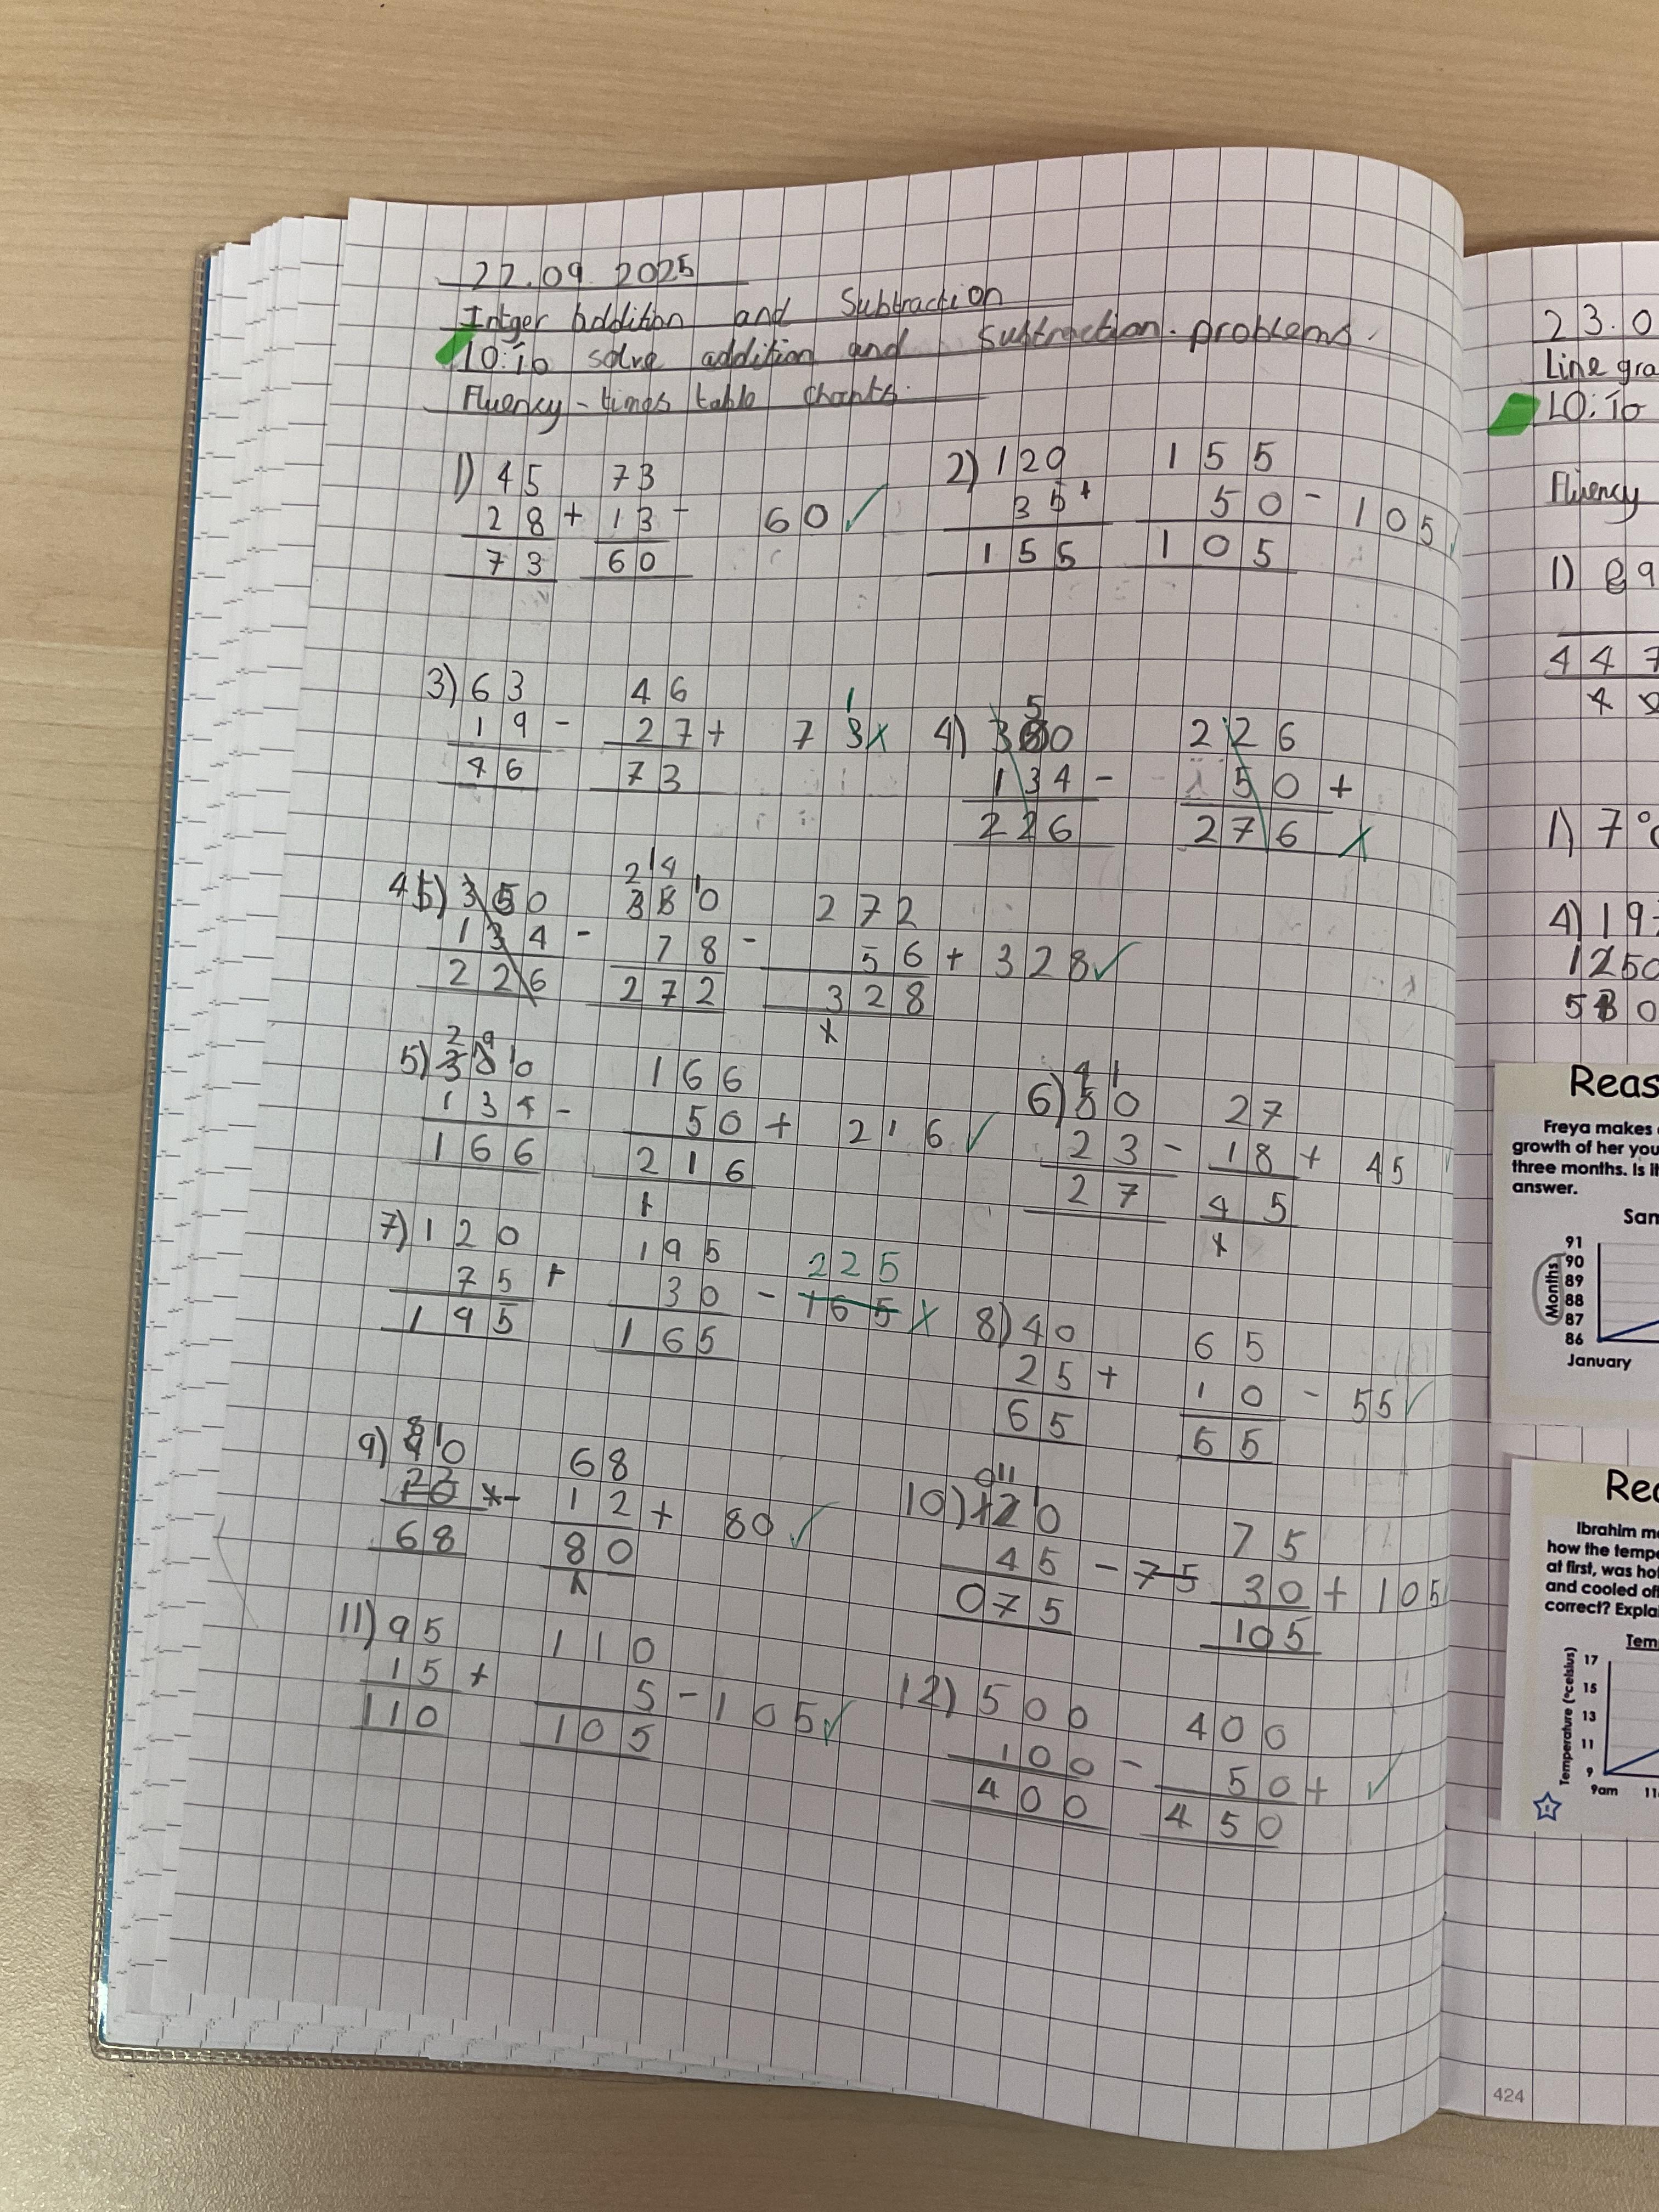 22.09.2025
Intger Addition and Subtraction
LO: To solve addition and subtraction problems.
Fluency - times table chants.
1) 45 73
28 + 13 - 60 ✓
73 60
2) 120 155
35 + 50 - 105
155 105
3) 63 46 1
19 - 27 + 73 x
46 73
4) 5
360 226
134 - 50 +
226 276 x
2 14 1
4 5) 360 350 272
134 - 78 - 56 + 328 ✓
226 272 328
1
5) 2 9 1
300 166
134 - 50 + 216 ✓
166 216
1
6) 4 1
50 27
23 - 18 + 45
27 45
1
7) 120 195 225
75 + 30 - 165 x
195 165
8) 40 65
25 + 10 - 55 ✓
65 55
9) 8 1
90 68
22
10 - 12 + 80 ✓
68 80
1
10) 0 11 1
120 75
45 - 75 30 + 105
075 105
11) 95 110
15 + 5 - 105 ✓
110 105
12) 500 400
100 - 50 + ✓
400 450
23.0
Line gra
LO: To
Fluency
1) 89
447
1) 7°
4) 19
1250
Reas
Freya makes
growth of her you
three months. Is it
answer.
San
Months
91
90
89
88
87
86
January
Rea
Ibrahim m
how the tempe
at first, was hot
and cooled off
correct? Explai
Tem
Temperature (°celsius)
17
15
13
11
9
9am 11
424